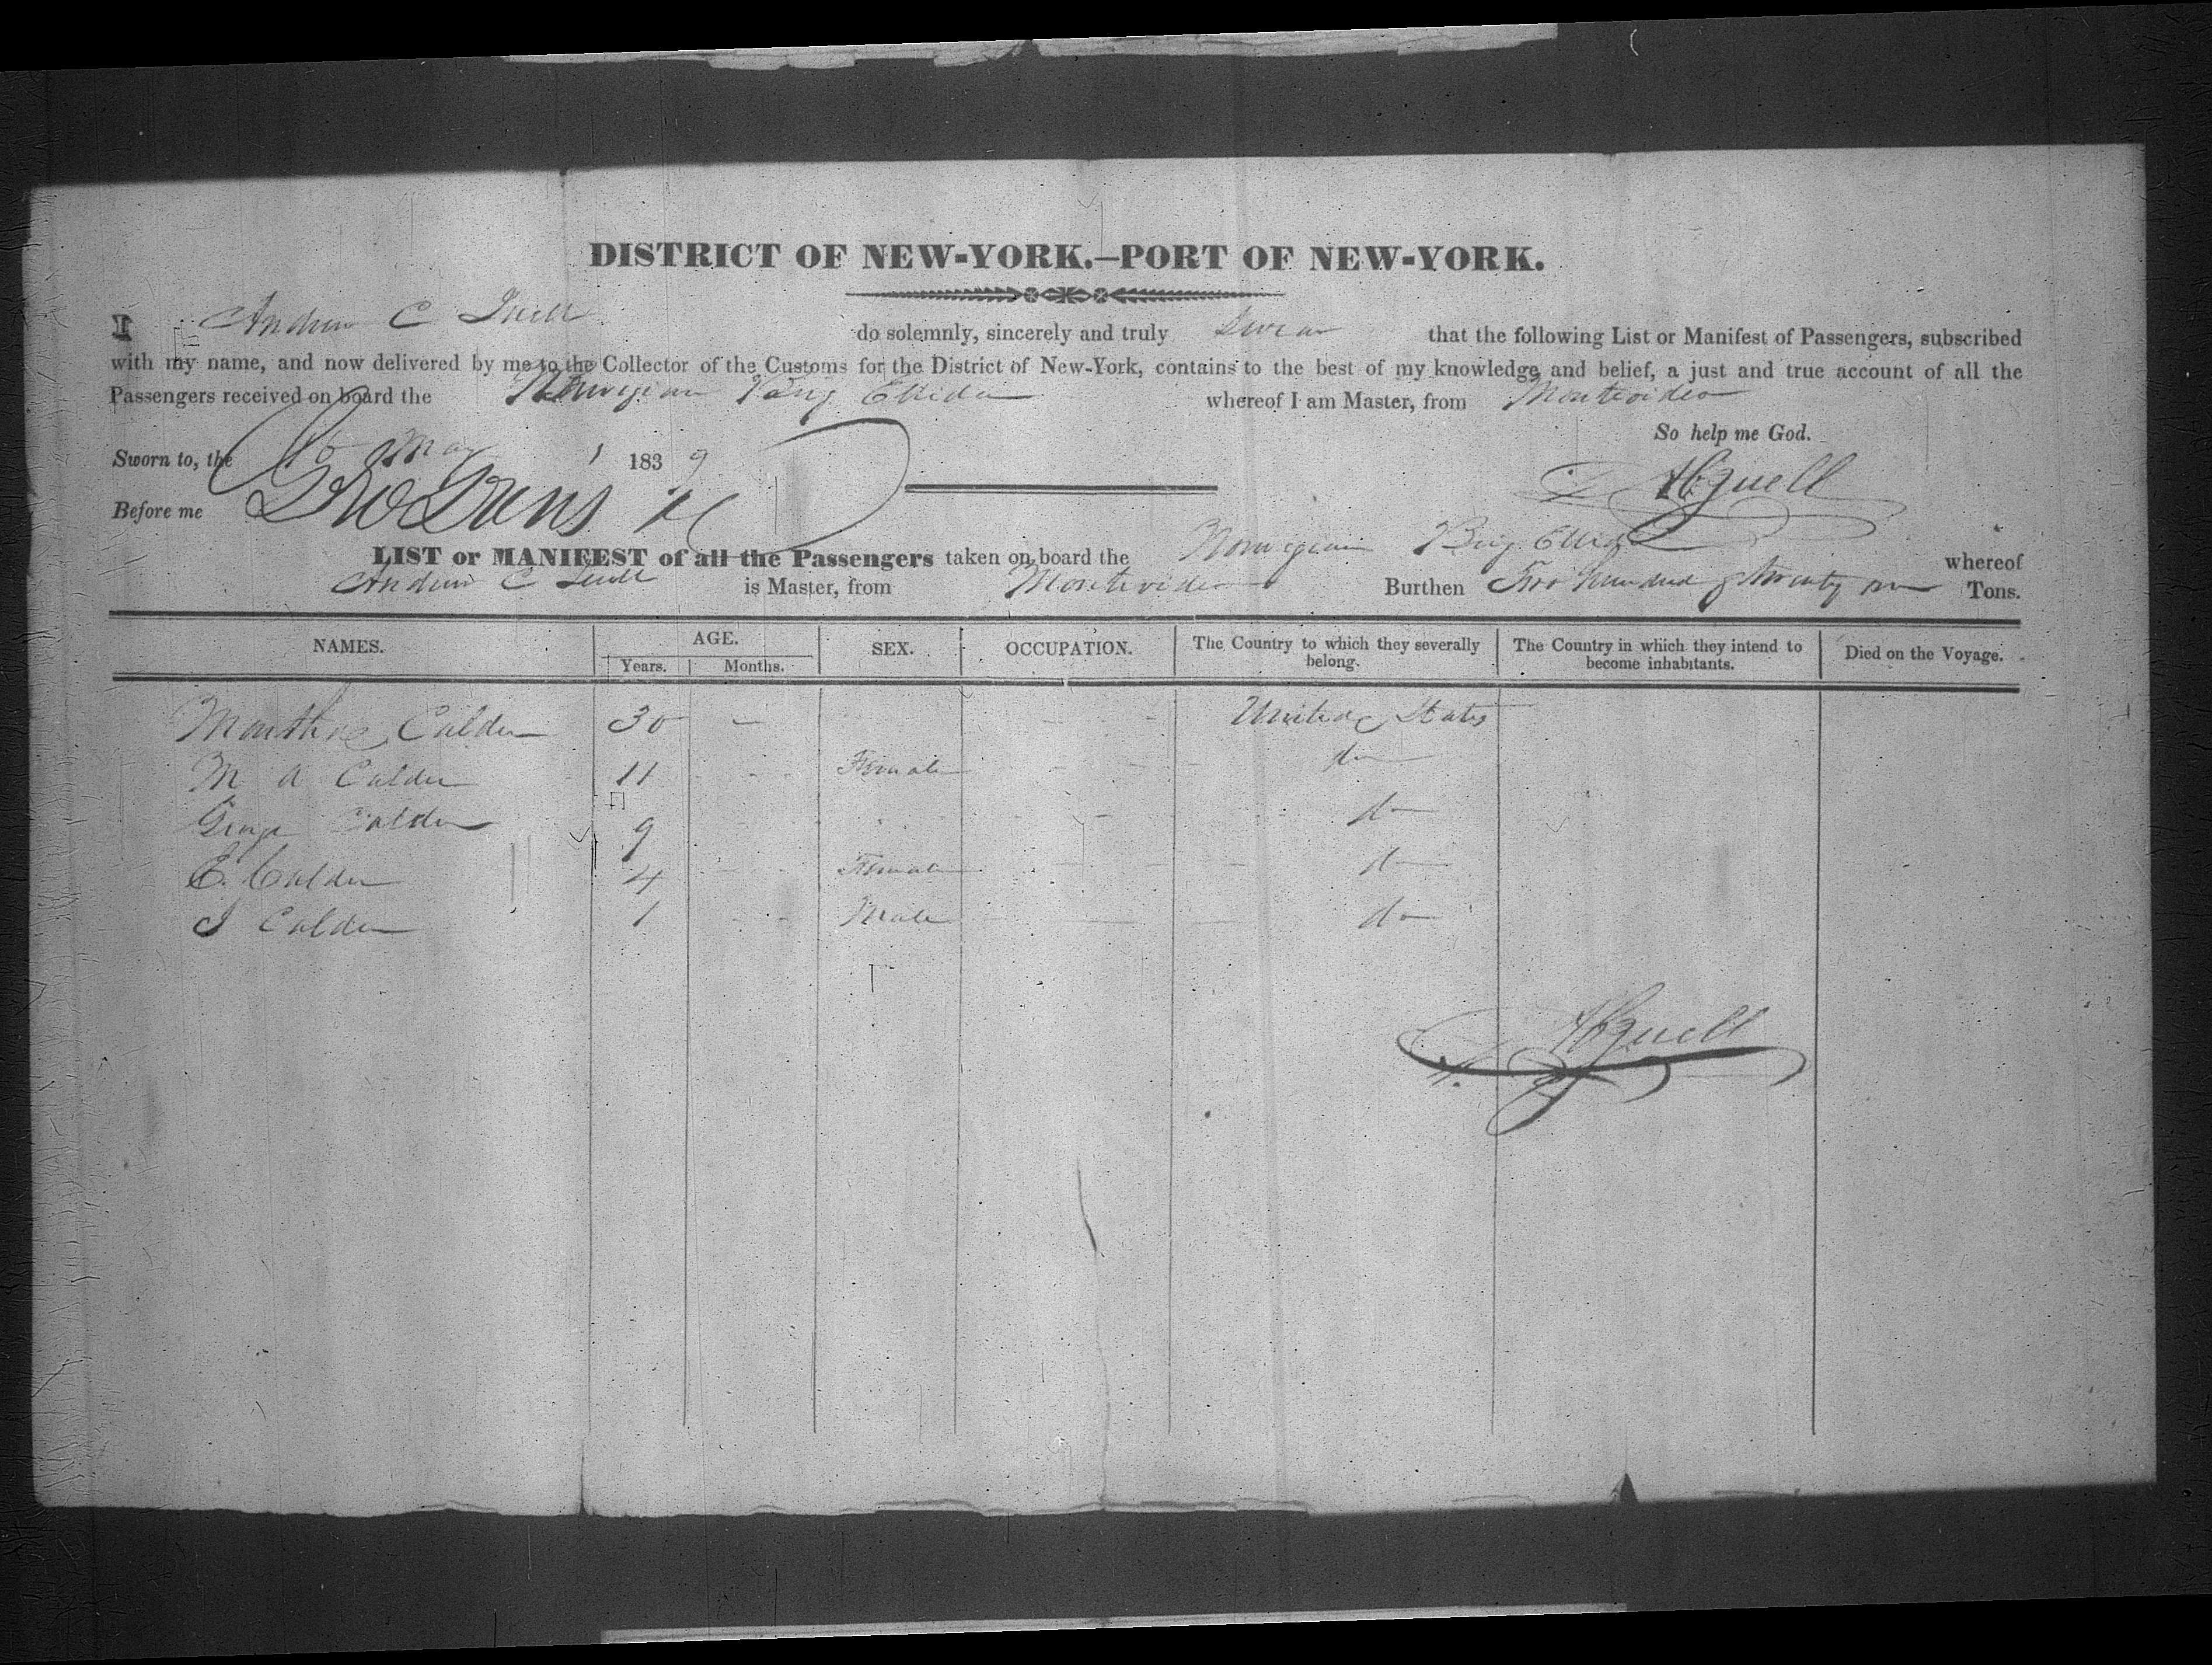 DISTRICT OF NEW-YORK.—PORT OF NEW-YORK.
I Andrew C do solemnly, sincerely and truly Swear that the following List or Manifest of Passengers, subscribed
with my name, and now delivered by me to the Collector of the Customs for the District of New-York, contains to the best of my knowledge and belief, a just and true account of all the
Passengers received on board the Norwegian Brig Ellida whereof I am Master, from Montevideo
So help me God.
Sworn to, the 16 May 1839
Before me
LIST or MANIFEST of all the Passengers taken on board the Norwegian Brig Ellida whereof
Andrew C is Master, from Montevideo Burthen Two hundred & twenty Tons.
NAMES. AGE. SEX. OCCUPATION. The Country to which they severally belong. The Country in which they intend to become inhabitants. Died on the Voyage.
Years. Months.
Calder 30 — United States
M A Calder 11 Female do
George Calder 9 do
E. Calder 4 Female do
J Calder 1 Male do